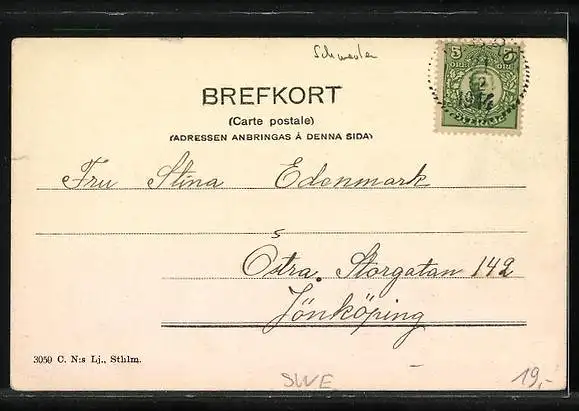 Schweden
BREFKORT
(Carte postale)
(ADRESSEN ANBRINGAS Å DENNA SIDA)
5 5
ÖRE ÖRE
SVERIGE
Fru Stina Edenmark
s
Östra. Storgatan 142
Jönköping
3050 C. N:s Lj., Sthlm.
SWE
19,-